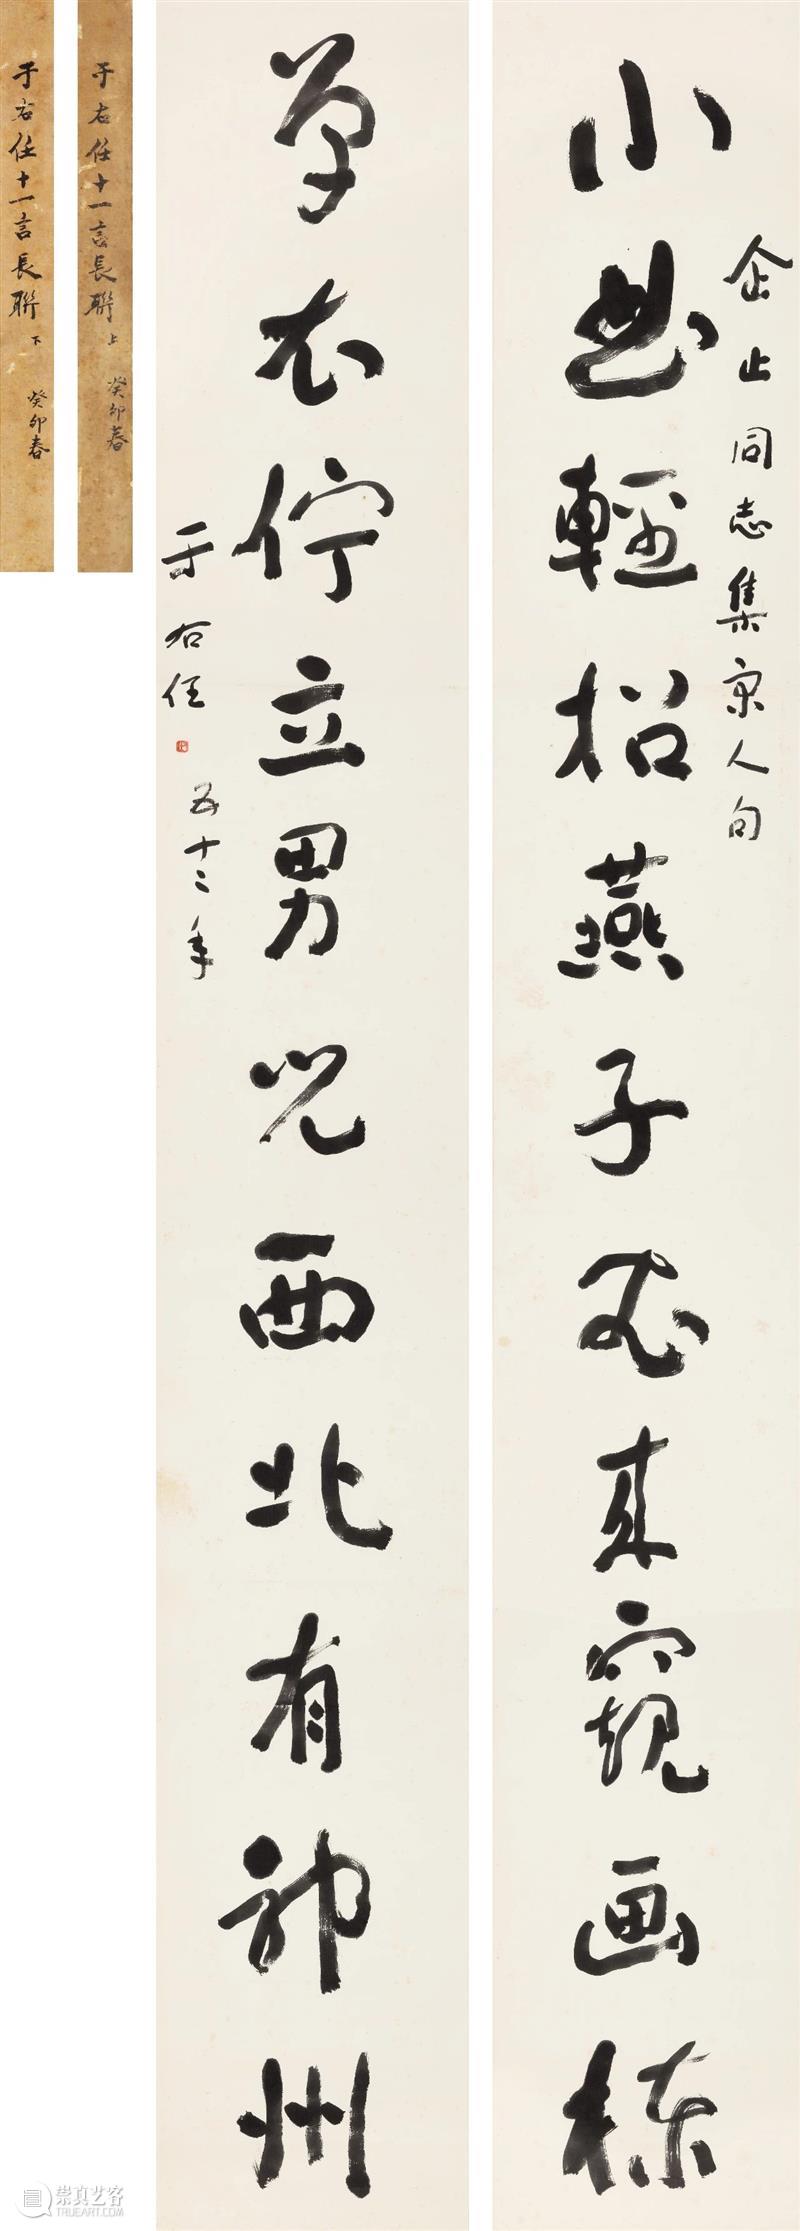 企止同志集宋人句
小曲輕招燕子忽来窺画棟
單衣佇立男兒西北有神州
于右任
五十二年
于右任十一言長聯 上 癸卯春
于右任十一言長聯 下 癸卯春
崇真艺客
TRUEART.COM